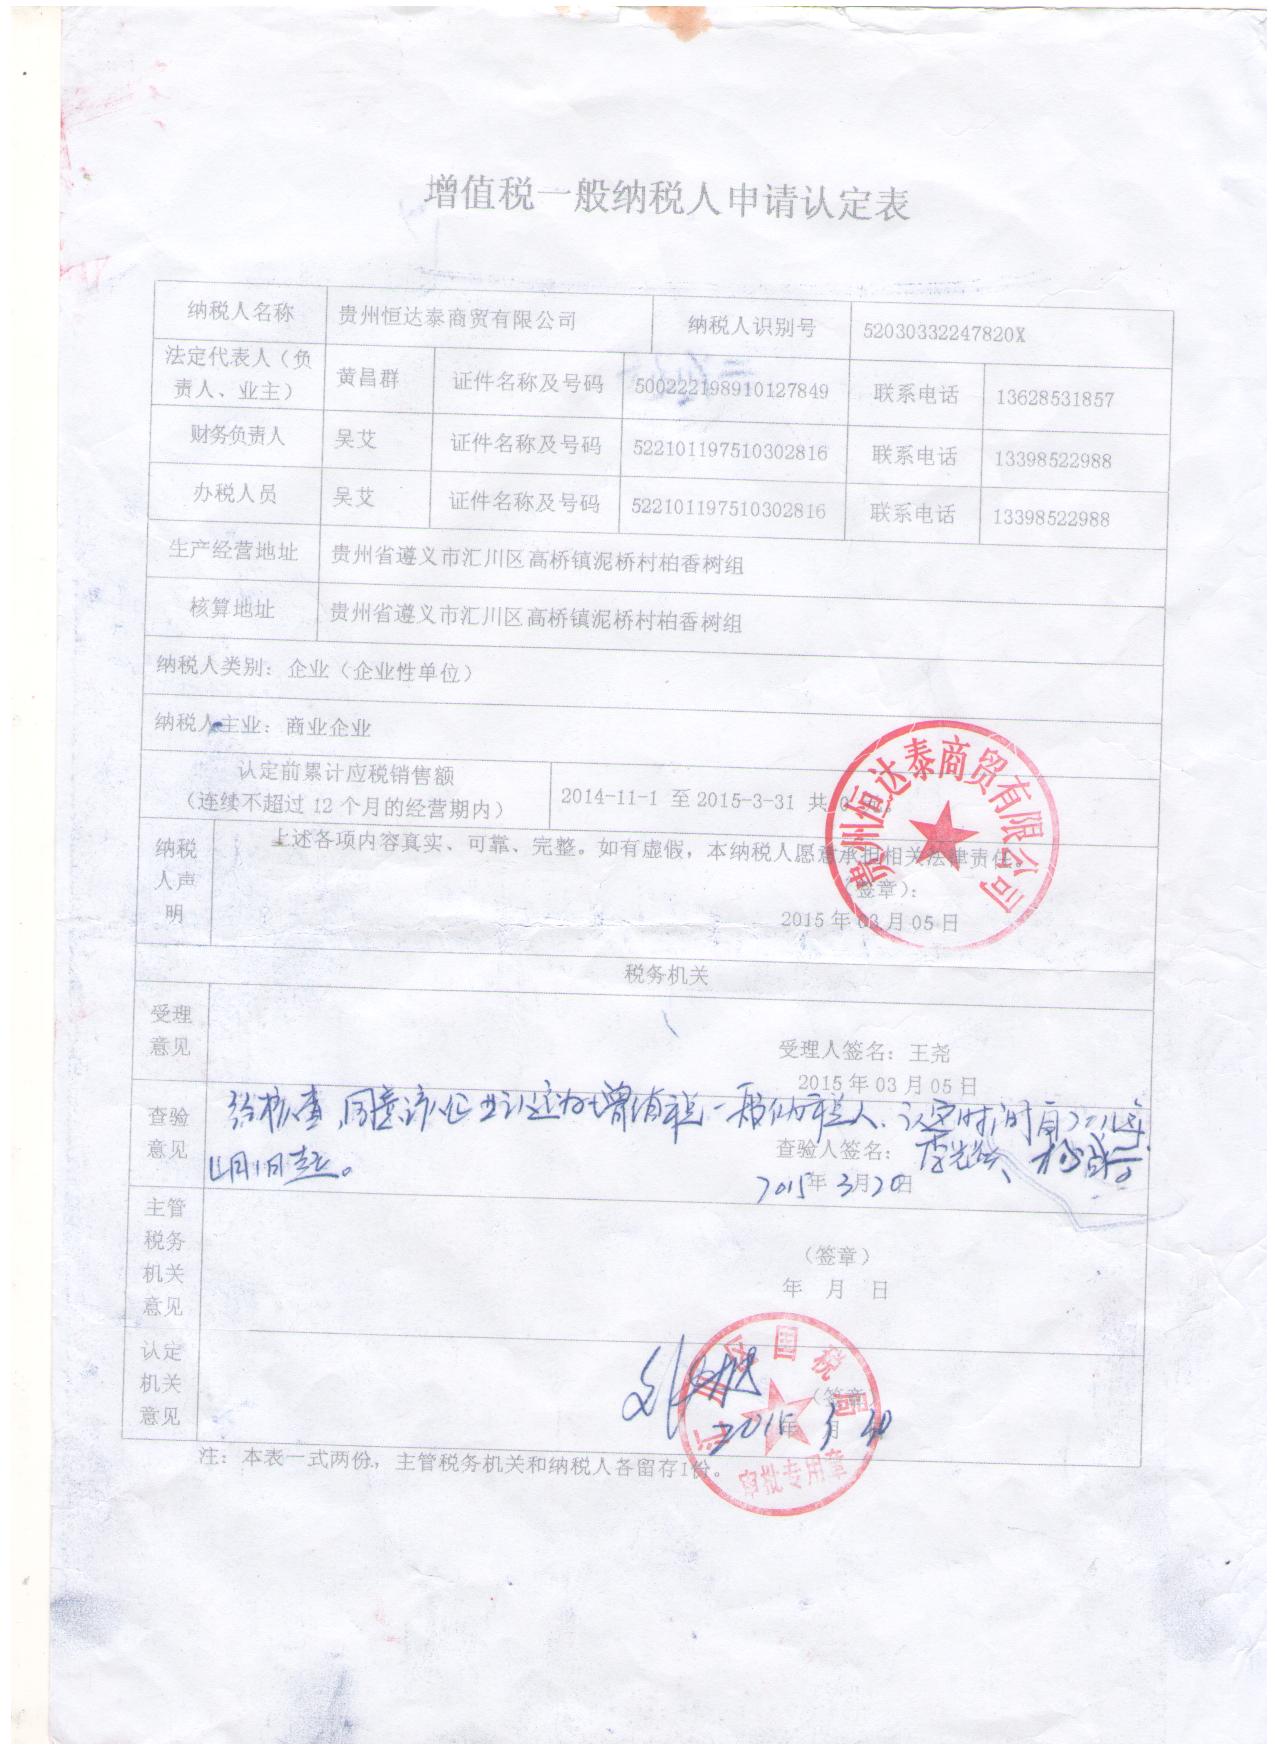 增值税一般纳税人申请认定表
纳税人名称 贵州恒达泰商贸有限公司 纳税人识别号 52030332247820X
法定代表人（负责人、业主） 黄昌群 证件名称及号码 500222198910127849 联系电话 13628531857
财务负责人 吴艾 证件名称及号码 522101197510302816 联系电话 13398522988
办税人员 吴艾 证件名称及号码 522101197510302816 联系电话 13398522988
生产经营地址 贵州省遵义市汇川区高桥镇泥桥村柏香树组
核算地址 贵州省遵义市汇川区高桥镇泥桥村柏香树组
纳税人类别：企业（企业性单位）
纳税人主业：商业企业
认定前累计应税销售额
（连续不超过 12 个月的经营期内） 2014-11-1 至 2015-3-31 共 0 元。
纳税人声明 上述各项内容真实、可靠、完整。如有虚假，本纳税人愿意承担相关法律责任。
（签章）：
2015 年 03 月 05 日
贵州恒达泰商贸有限公司
税务机关
受理意见
受理人签名：王尧
2015 年 03 月 05 日
查验意见 经核查，同意该企业认定为增值税一般纳税人，认定时间自
月1日起。
查验人签名：
2015年 3月20日
主管税务机关意见
（签章）
年 月 日
认定机关意见
（签章）
2015年 3月 20
汇川区国税局
审批专用章
注：本表一式两份，主管税务机关和纳税人各留存1份。